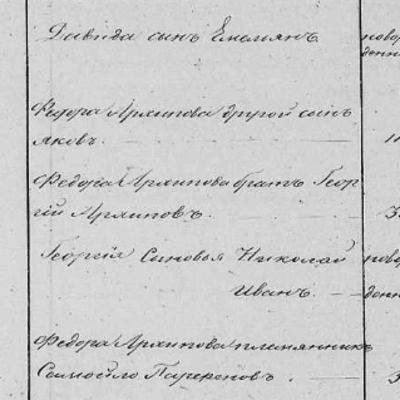 Давида сынъ Емельянъ
новор
денн
Федора Архипова другой сынъ
яковъ.
11
Федора Архипова братъ Геор
гій Архиповъ.
3
Георгія Сыновья Николай
новор
Иванъ.
денн
Федора Архипова племянникъ
Самойло Парфеновъ.
3